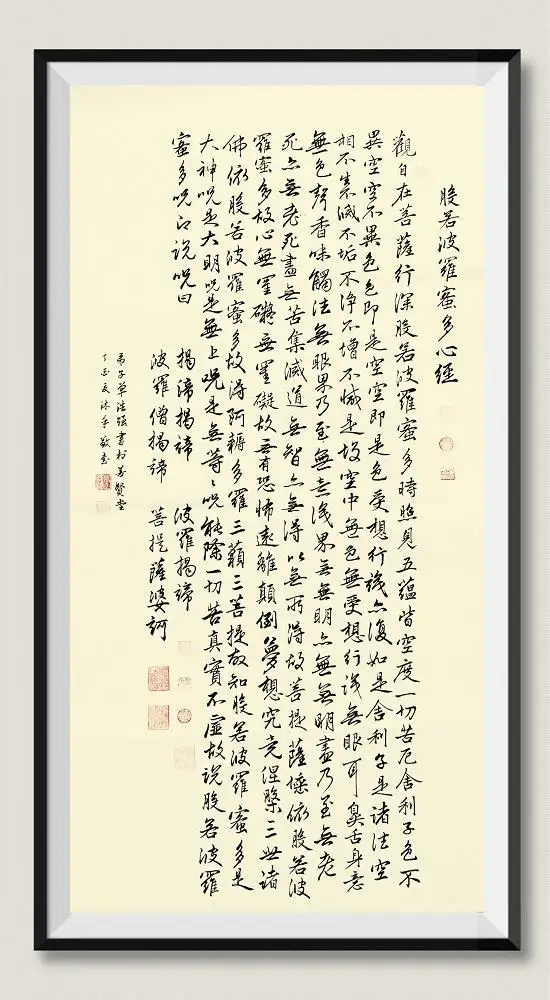 般若波羅蜜多心經
觀自在菩薩行深般若波羅蜜多時照見五蘊皆空度一切苦厄舍利子色不
異空空不異色色即是空空即是色受想行識亦復如是舍利子是諸法空
相不生滅不垢不淨不增不減是故空中無色無受想行識無眼耳鼻舌身意
無色聲香味觸法無眼界乃至無意識界無無明亦無無明盡乃至無老
死亦無老死盡無苦集滅道無智亦無得以無所得故菩提薩埵依般若波
羅蜜多故心無罣礙無罣礙故無有恐怖遠離顛倒夢想究竟涅槃三世諸
佛依般若波羅蜜多故得阿耨多羅三藐三菩提故知般若波羅蜜多是
大神咒是大明咒是無上咒是無等々咒能除一切苦真實不虛故說般若波羅
蜜多咒即說咒曰
揭諦揭諦 波羅揭諦
波羅僧揭諦 菩提薩婆訶
弟子單法強書於善賢堂
丁酉夏沐手敬書